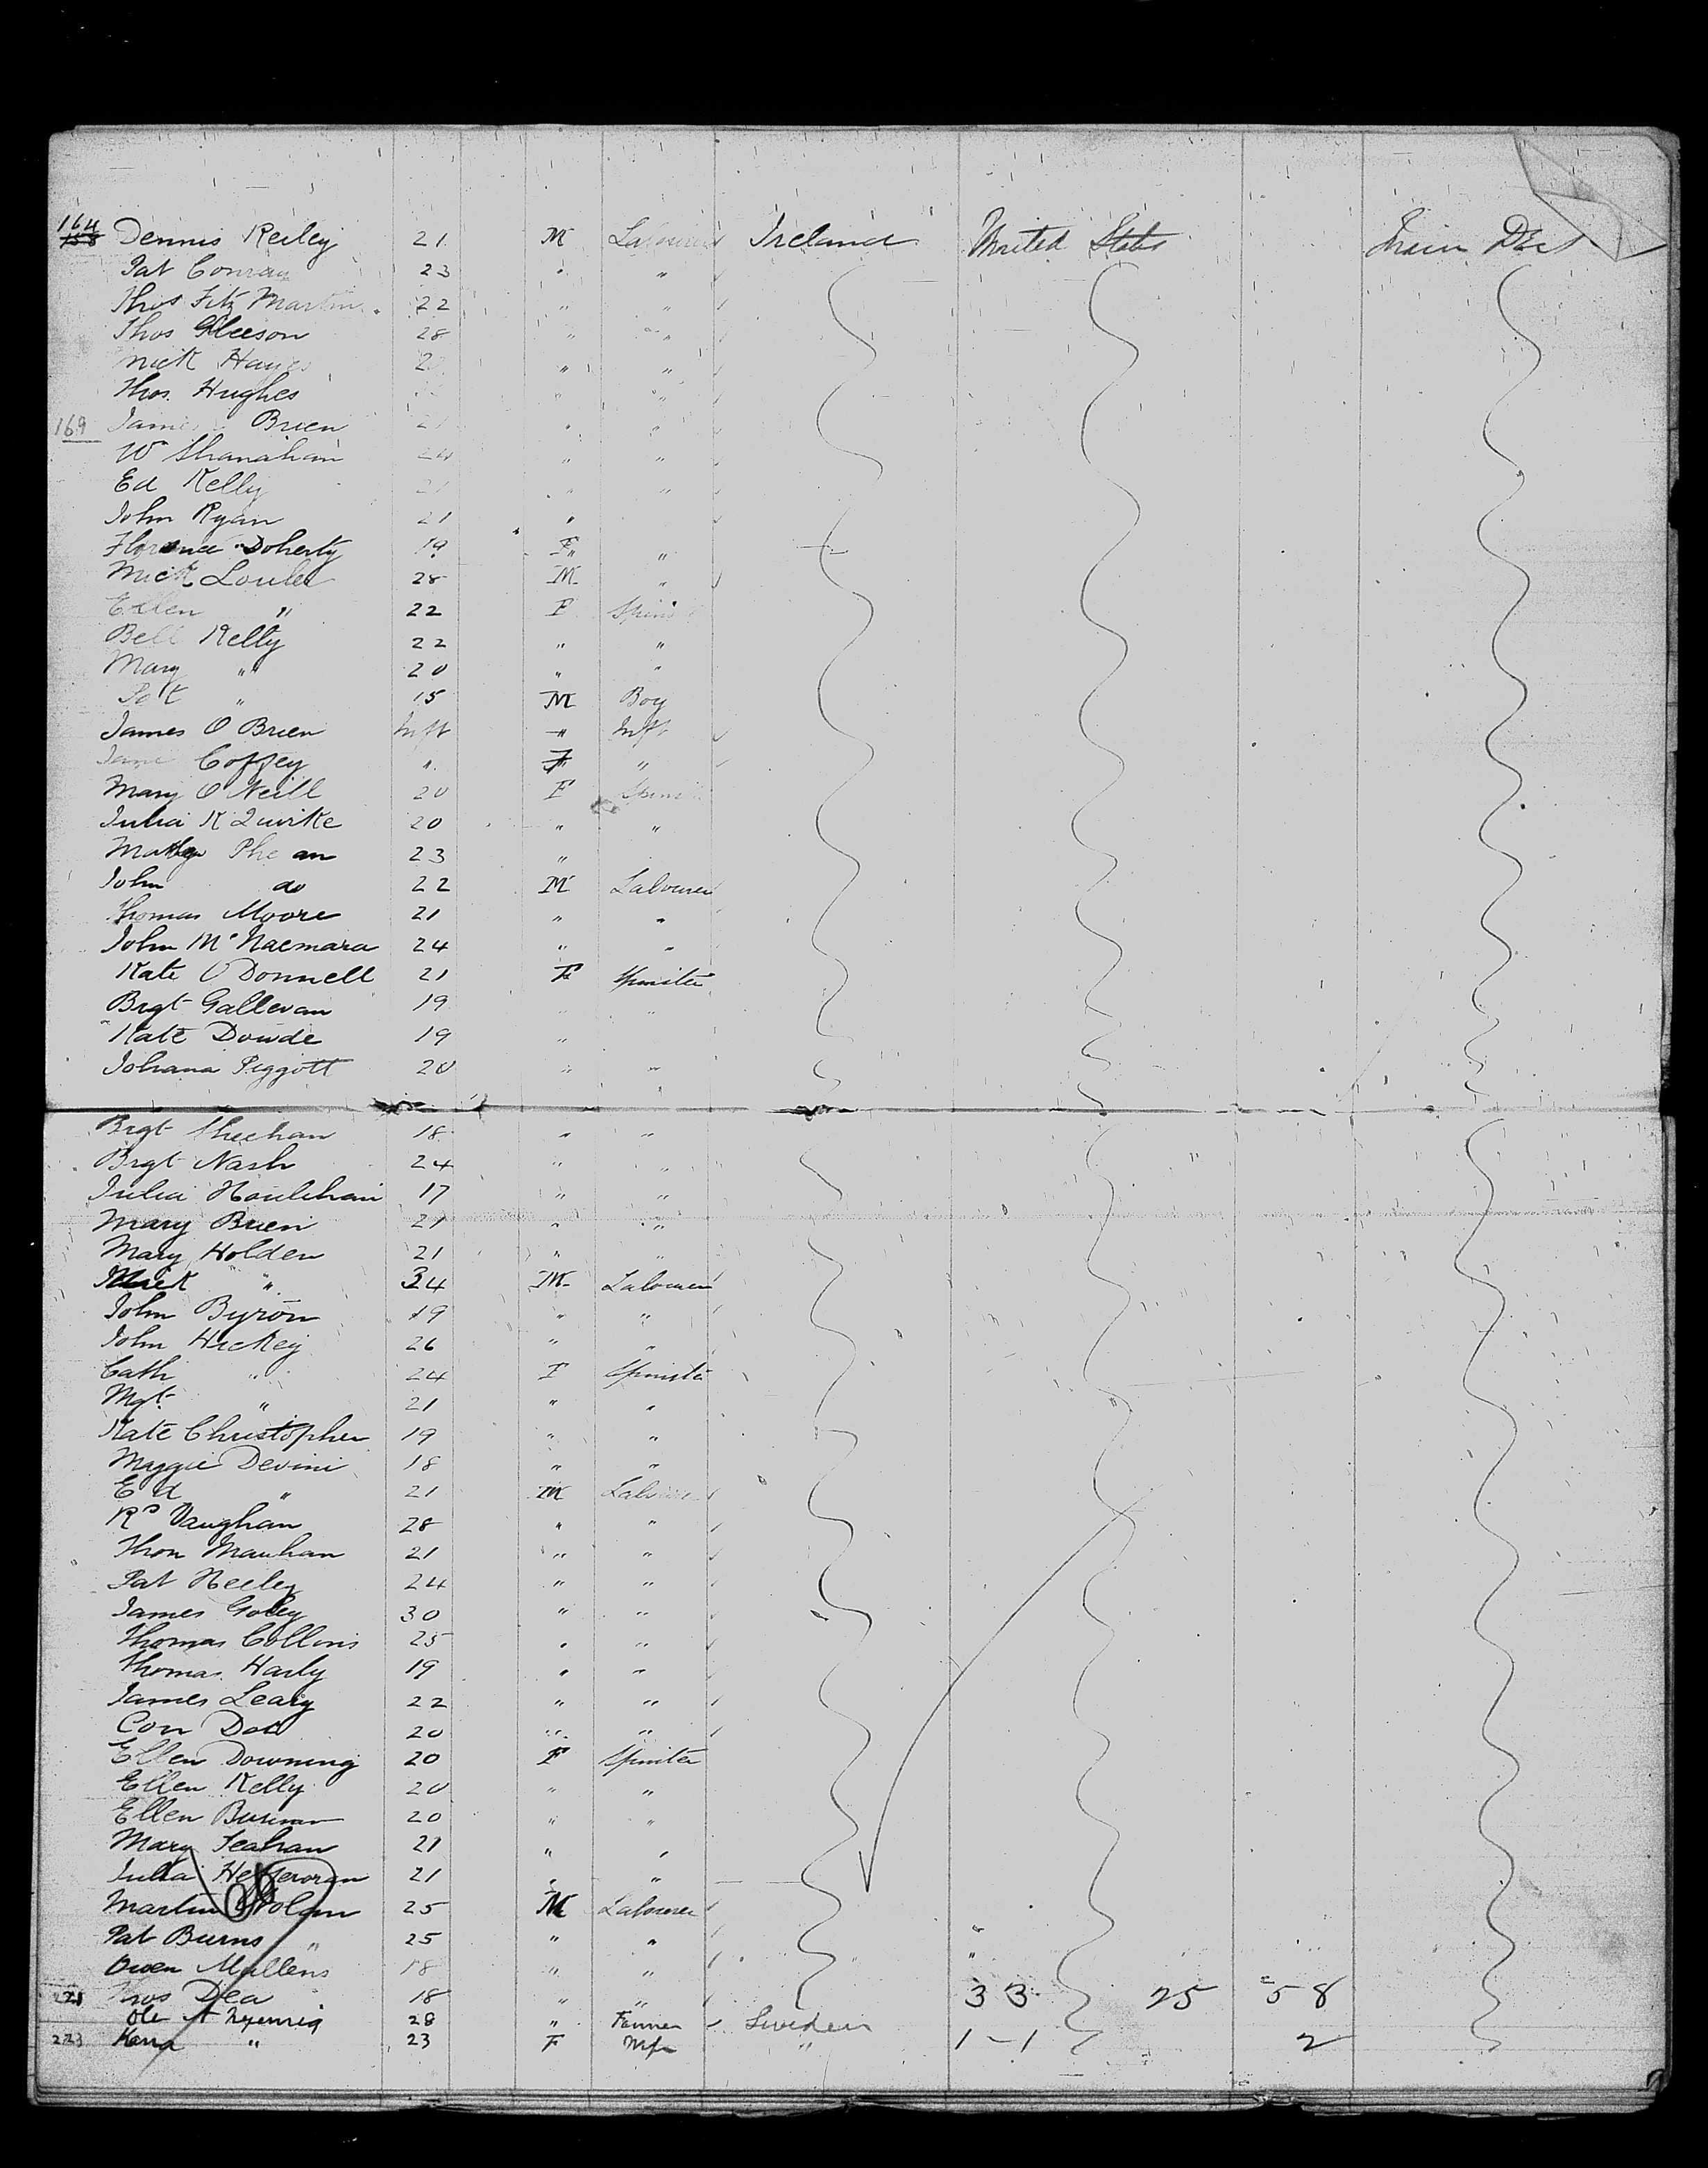 164
158 Dennis Reiley 21 M Labourer Ireland United States Main Deck
Pat Conray 23 " "
Thos Fitz Martin 22 " "
Thos Gleeson 28 " "
Mick Hayes 2 " "
Thos. Hughes " "
169 James Brien 21 " "
Wm Shanahan 24 " "
Ed Kelly 21 " "
John Ryan 21 "
Florence Doherty 19 F "
Mick Louler 28 M "
Ellen " 22 F Spins
Bell Kelly 22 " "
Mary " 20 " "
Pat " 15 M Boy
James O Brien Inft " Inft
Jane Coffey " F "
Mary O Neill 20 F Spins
Julia K Quirke 20 " "
Phe an 23 "
John do 22 M Labourer
Thomas Moore 21 " "
John McNacmara 24 " "
Kate O Donnell 21 F Spinster
Brgt Gallevan 19 " "
Kate Dowde 19 "
Johana Piggott 20 " "
Brgt Sheehan 18 " "
Brgt Nash 24 " "
Julia Houlihan 17 " "
Mary Brien 21 " "
Mary Holden 21 " "
Mick " 34 M Labourer
John Byron 19 " "
John Hickey 26 " "
Cath " 24 F Spinster
Mgt. " 21 " "
Kate Christopher 19 " "
Maggie Devini 18 " "
Ed " 21 M Labourer
Rd Vaughan 28 " "
Thon Mauhan 21 " "
Pat Neeley 24 " "
James 30 " "
Thomas Collins 25 " "
Thomas Harly 19 " "
James Leary 22 " "
Con 20 " "
Ellen Downing 20 F Spinster
Ellen Kelly 20 " "
Ellen 20 " "
Mary Leahan 21 " "
Julia Hefferoran 21 " "
Martin Nolan 25 M Labourer
Pat Burns " 25 " " "
Owen Mullens 18 " " "
221 Thos Dea 18 " " 33 25 = 58
Ole A 28 " Farmer Sweden
223 " 23 F Wife " 1 - 1 2